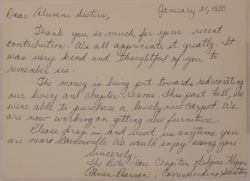 January 21, 1980
Dear Alumni Sisters,
Thank you so much for your recent
contribution. We all appreciate it greatly. It
was very kind and thoughtful of you to
remember us.
The money is being put towards redecorating
our house and chapter rooms. This past fall, we
were able to purchase a lovely new carpet. We
are now working on getting new furniture.
Please drop in and visit us anytime you
are near. We would enjoy seeing you.
Sincerely,
The Beta Chapter Sigma Kappa
Corresponding Secretary